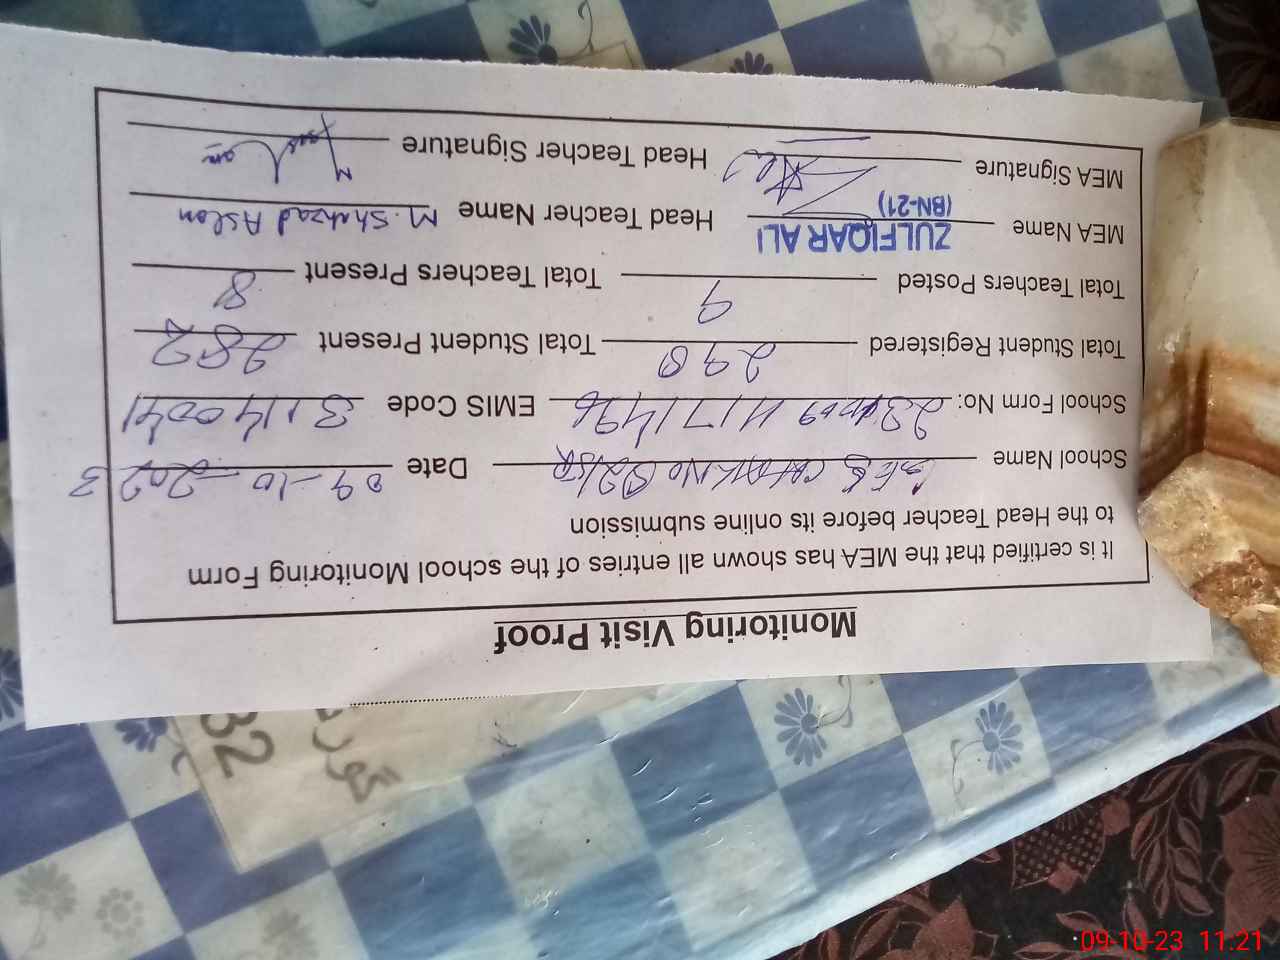 Monitoring Visit Proof
It is certified that the MEA has shown all entries of the school Monitoring Form
to the Head Teacher before its online submission
School Name Date 09-10-2023
School Form No: EMIS Code 31140041
Total Student Registered 290 Total Student Present 282
Total Teachers Posted 9 Total Teachers Present 8
MEA Name ZULFIQAR ALI Head Teacher Name M. Shahzad Aslam
(BN-21)
MEA Signature Head Teacher Signature
32
09-10-23 11:21